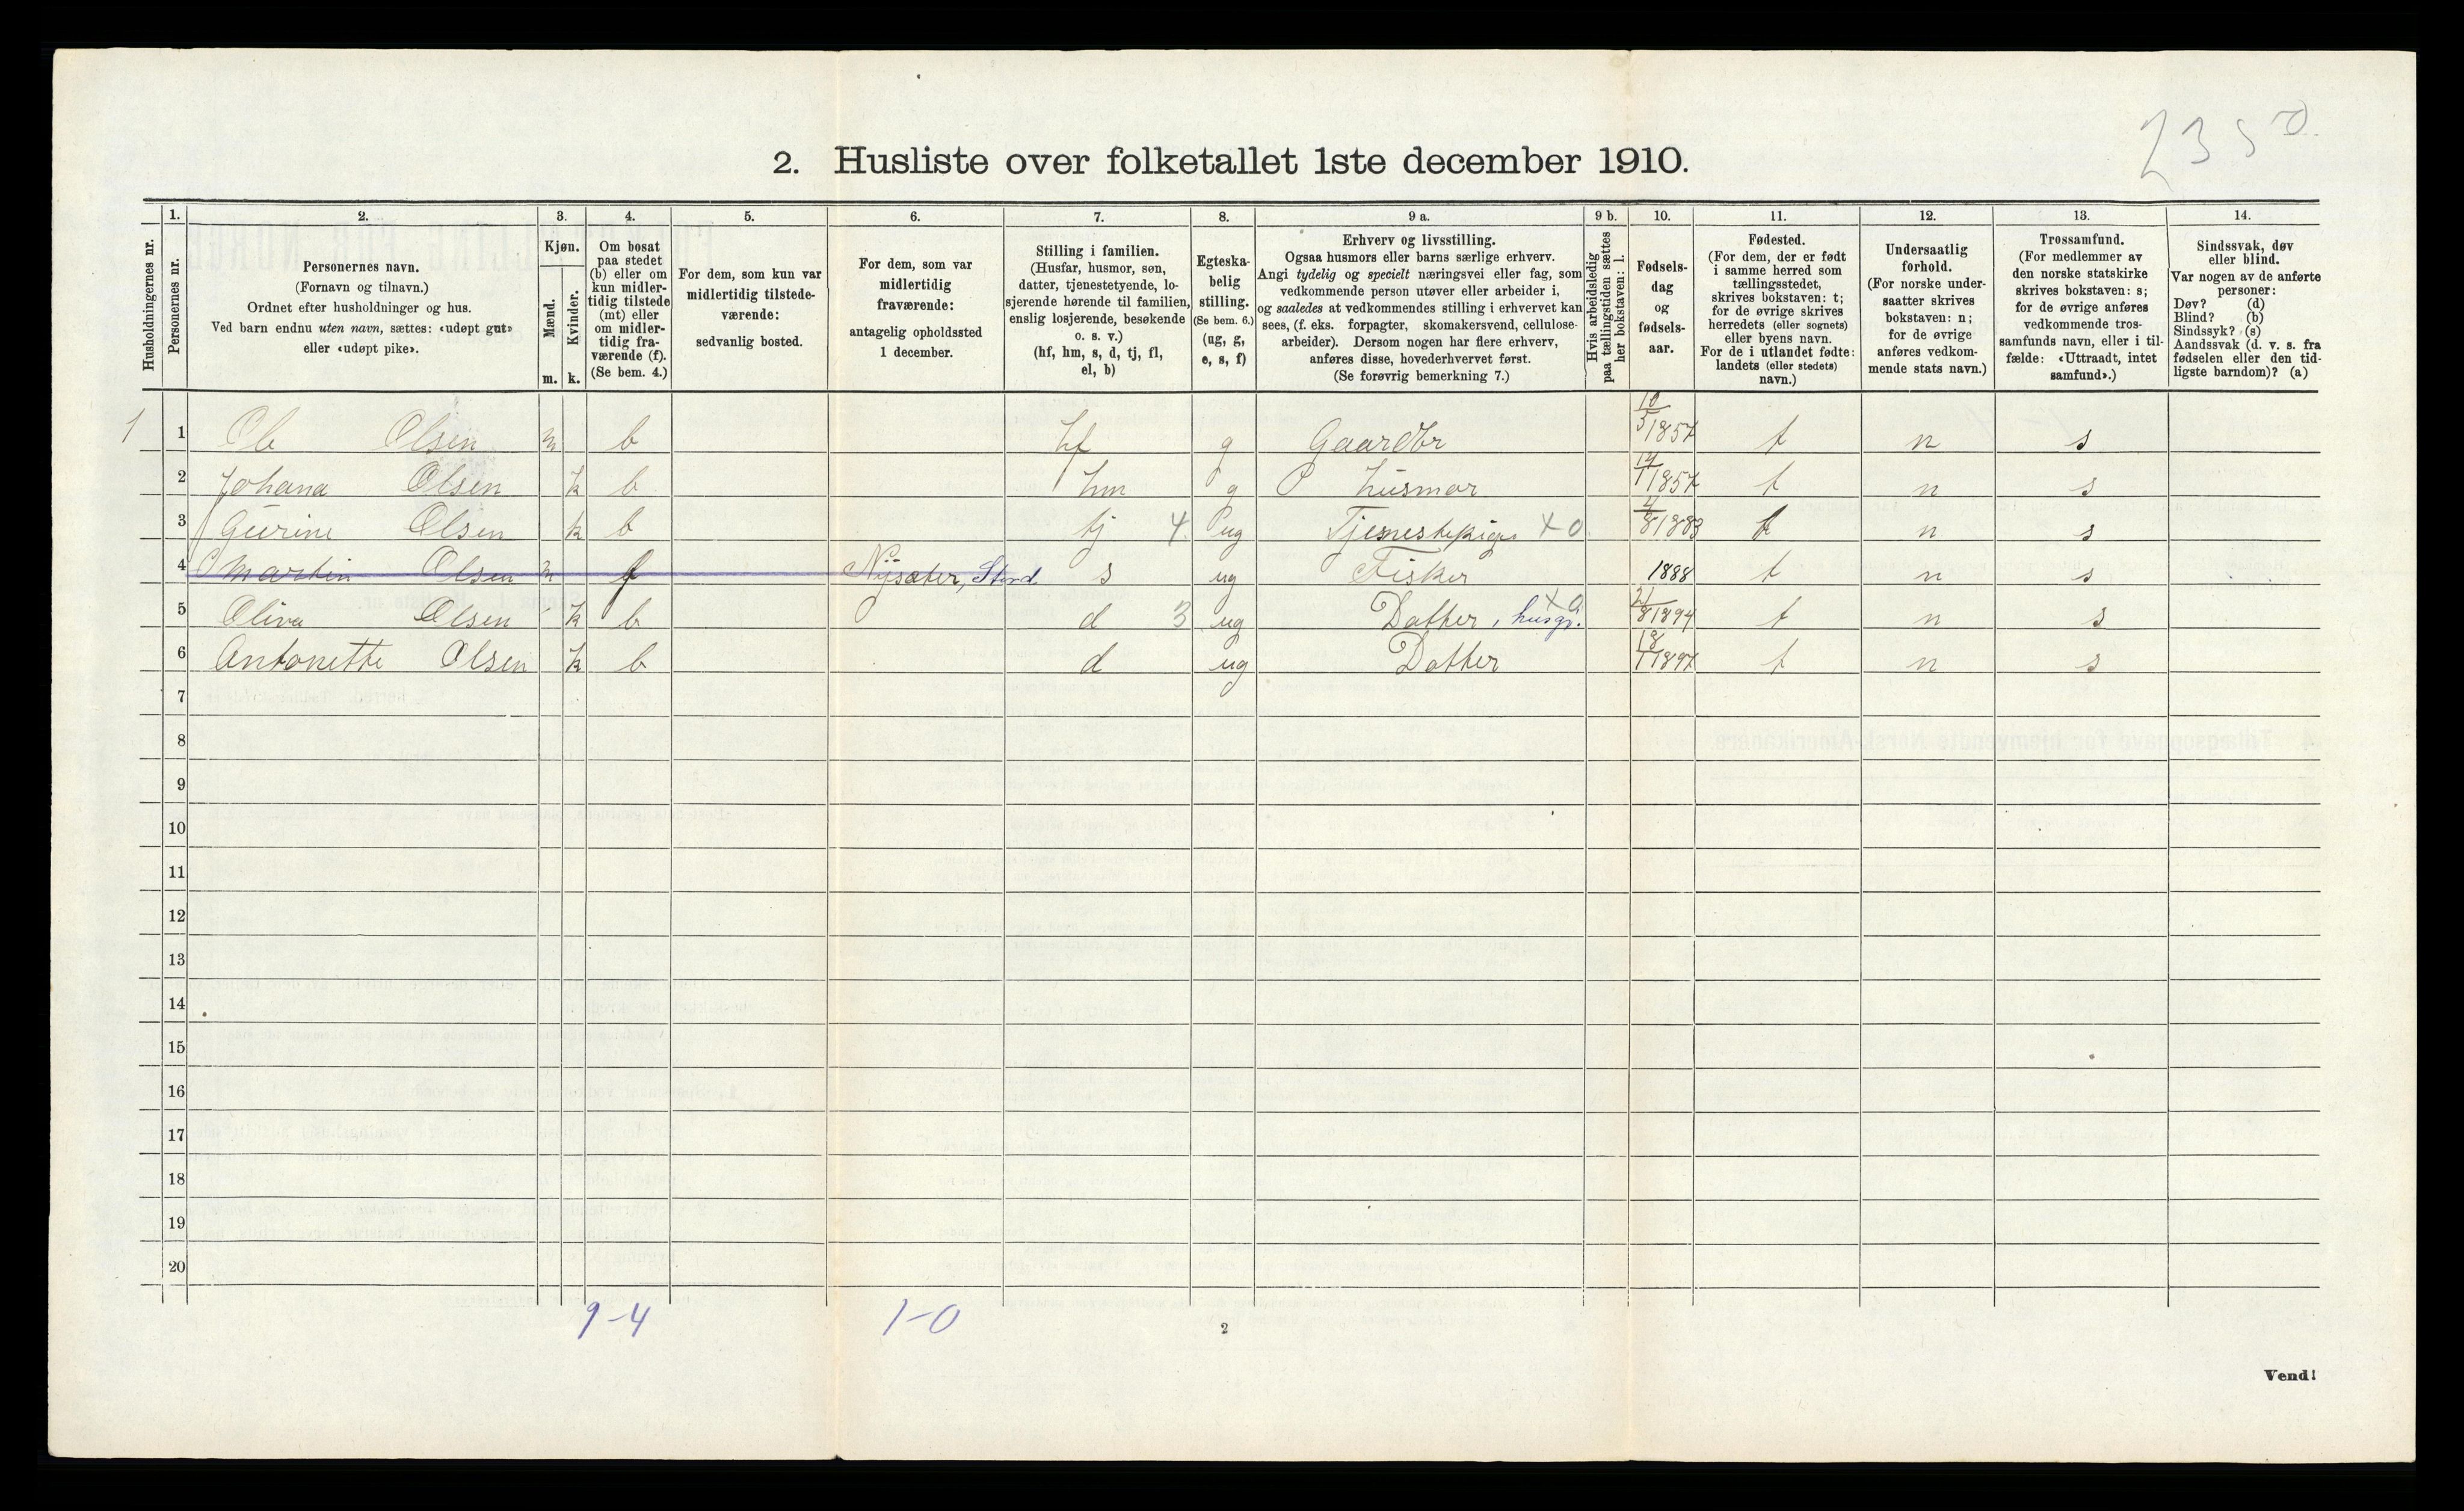 2350
2. Husliste over folketallet 1ste december 1910.
Husholdningernes nr.
1. Personernes nr.
2. Personernes navn. (Fornavn og tilnavn.) Ordnet efter husholdninger og hus. Ved barn endnu uten navn, sættes: «udøpt gut» eller «udøpt pike».
3. Kjøn. Mænd. m. Kvinder. k.
4. Om bosat paa stedet (b) eller om kun midlertidig tilstede (mt) eller om midlertidig fraværende (f). (Se bem. 4.)
5. For dem, som kun var midlertidig tilstedeværende: sedvanlig bosted.
6. For dem, som var midlertidig fraværende: antagelig opholdssted 1 december.
7. Stilling i familien. (Husfar, husmor, søn, datter, tjenestetyende, losjerende hørende til familien, enslig losjerende, besøkende o. s. v.) (hf, hm, s, d, tj, fl, el, b)
8. Egteskabelig stilling. (Se bem. 6.) (ug, g, e, s, f)
9 a. Erhverv og livsstilling. Ogsaa husmors eller barns særlige erhverv. Angi tydelig og specielt næringsvei eller fag, som vedkommende person utøver eller arbeider i, og saaledes at vedkommendes stilling i erhvervet kan sees, (f. eks. forpagter, skomakersvend, cellulosearbeider). Dersom nogen har flere erhverv, anføres disse, hovederhvervet først. (Se forøvrig bemerkning 7.)
9 b. Hvis arbeidsledig paa tællingstiden sættes her bokstaven: l.
10. Fødselsdag og fødselsaar.
11. Fødested. (For dem, der er født i samme herred som tællingsstedet, skrives bokstaven: t; for de øvrige skrives herredets (eller sognets) eller byens navn. For de i utlandet fødte: landets (eller stedets) navn.)
12. Undersaatlig forhold. (For norske undersaatter skrives bokstaven: n; for de øvrige anføres vedkommende stats navn.)
13. Trossamfund. (For medlemmer av den norske statskirke skrives bokstaven: s; for de øvrige anføres vedkommende trossamfunds navn, eller i tilfælde: «Uttraadt, intet samfund».)
14. Sindssvak, døv eller blind. Var nogen av de anførte personer: Døv? (d) Blind? (b) Sindssyk? (s) Aandssvak (d. v. s. fra fødselen eller den tidligste barndom)? (a)
1 1 Olsen m b hf g Gaardbr 10/5 1857 t n s
2 Johana Olsen k b hm g husmor 1857 t n s
3 Gurine Olsen k b tj 4 ug Tjenestepige x 0 4/8 1883 t n s
4 Martin Olsen m f Nysæter, Stord s ug Fisker 1888 t n s
5 Oliva Olsen k b d 3 ug Datter, husgj. x 0 21/8 1894 t n s
6 Antonette Olsen k b d ug Datter 18/1 1897 t n s
7
8
9
10
11
12
13
14
15
16
17
18
19
20
1-4 1-0
2
Vend!